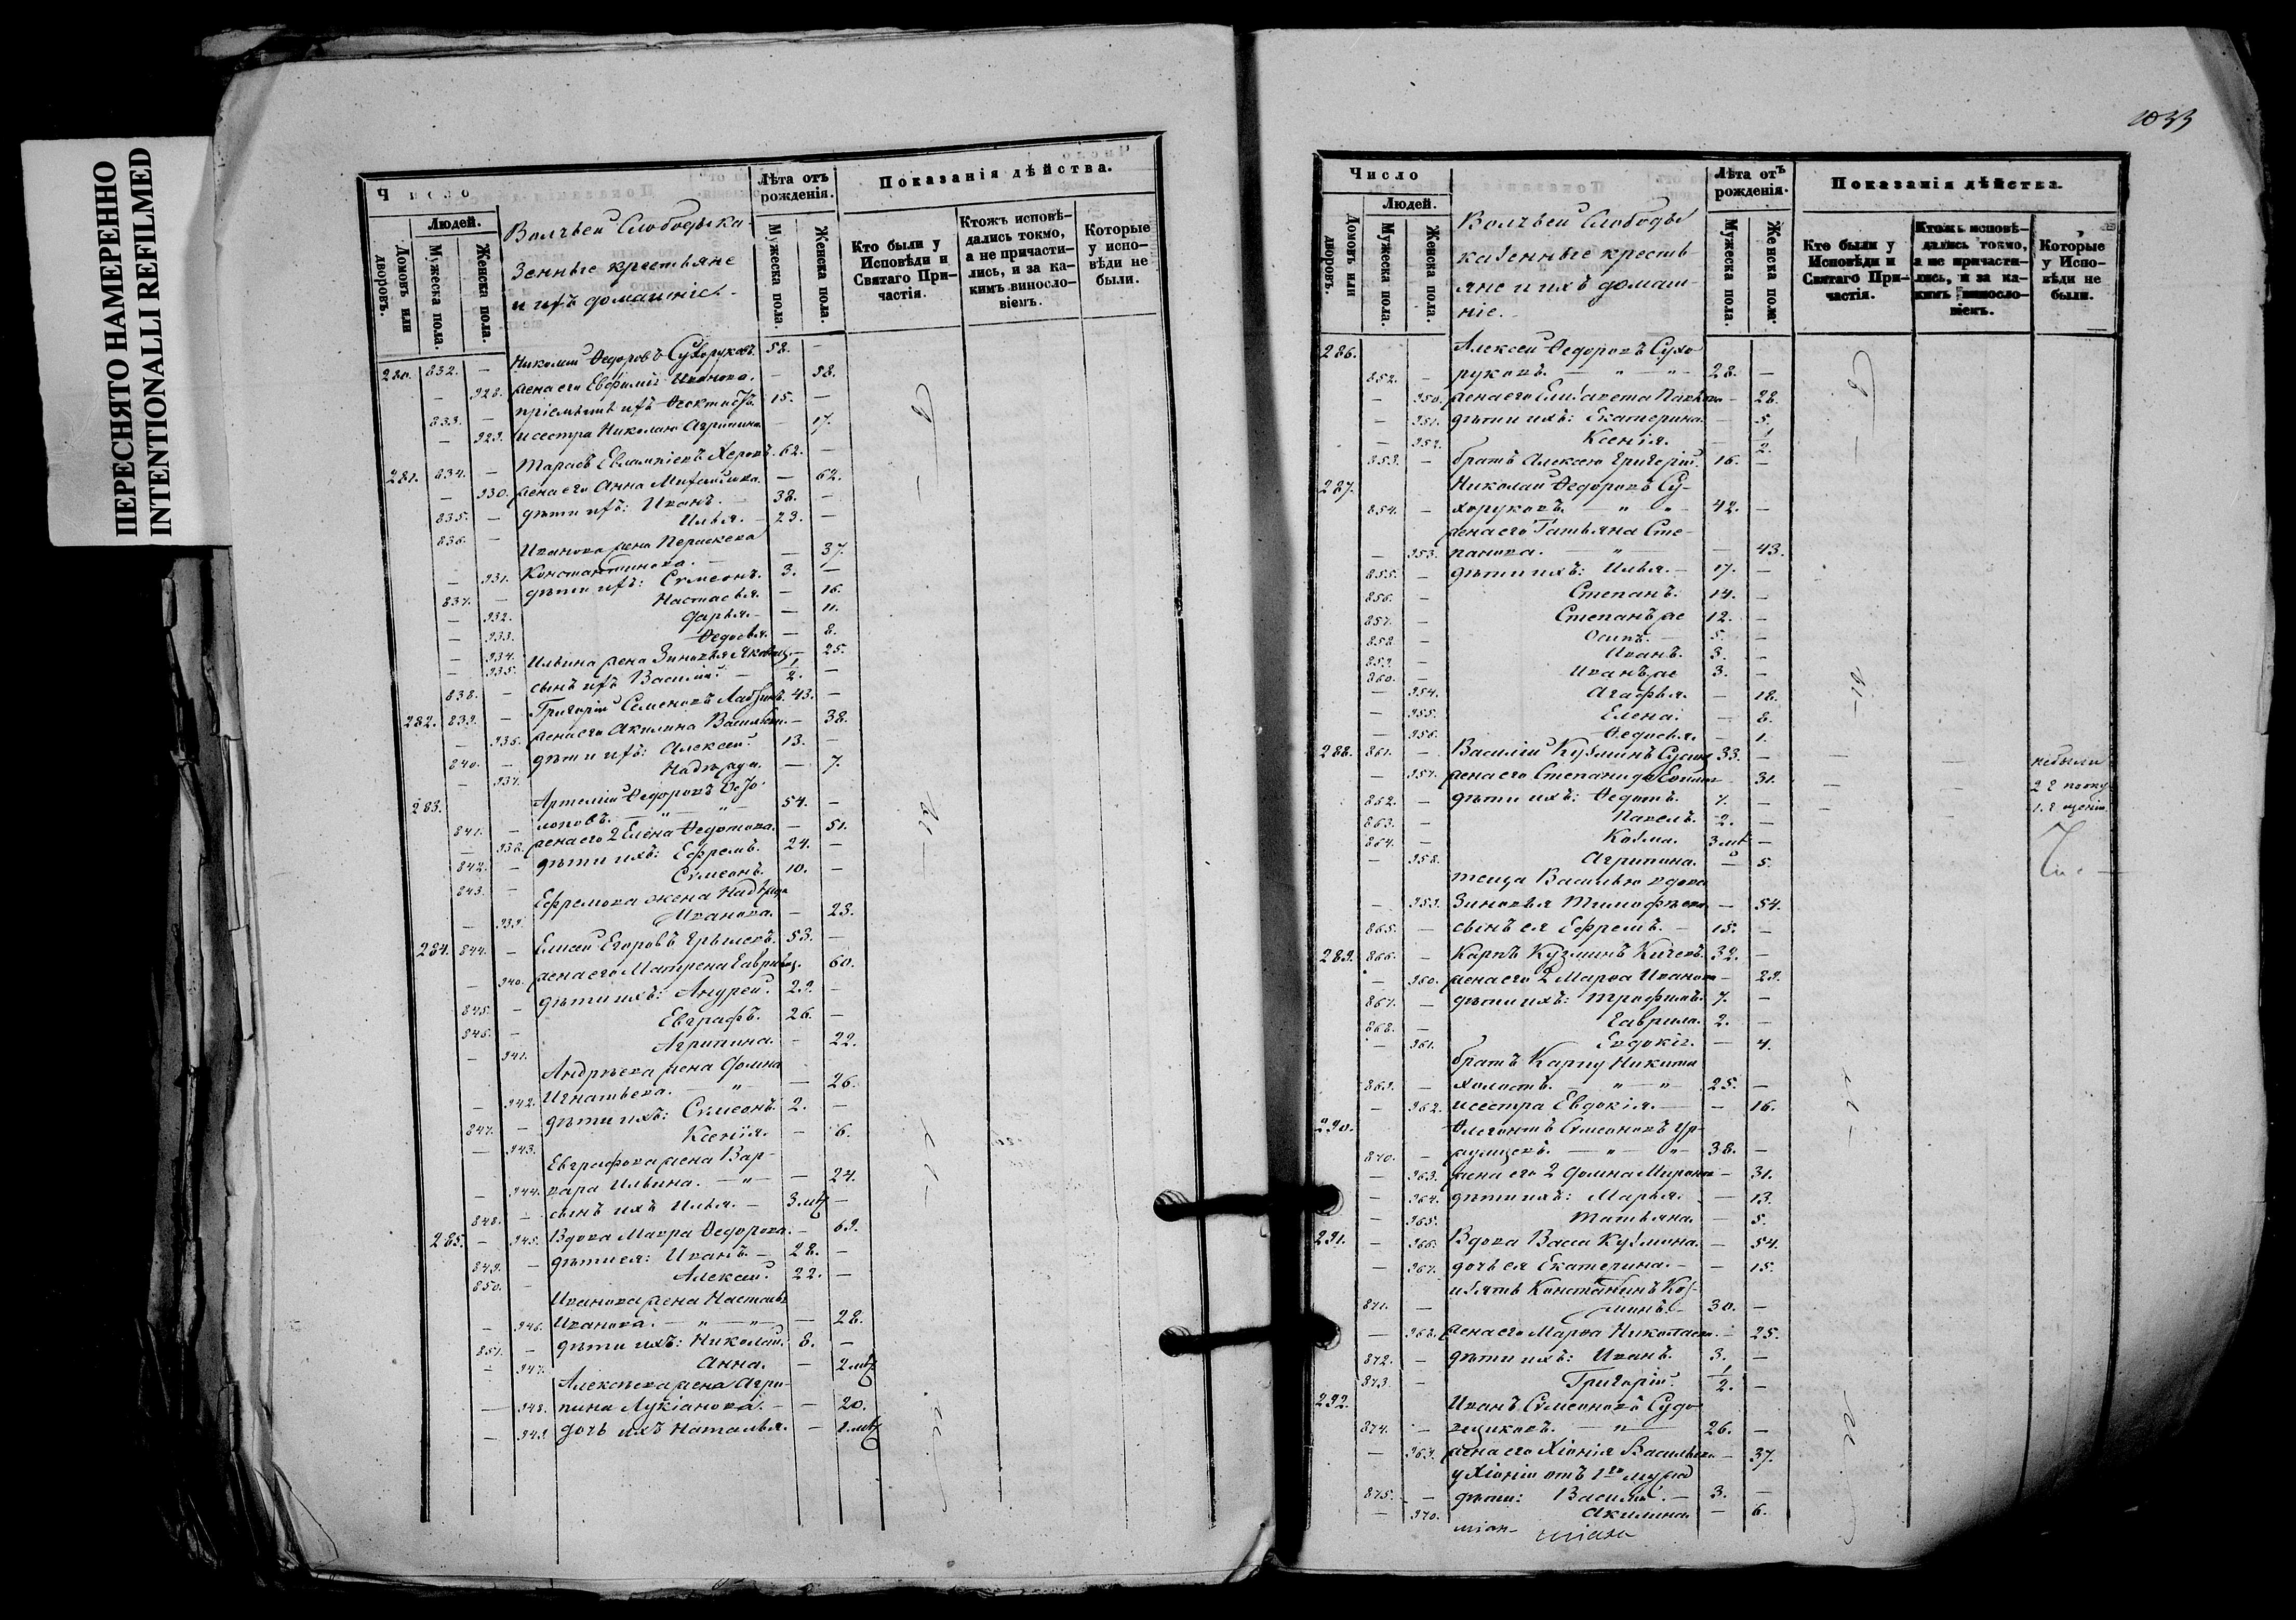 ПЕРЕСНЯТО НАМЕРЕННО
INTENTIONALLI REFILMED
Число
Людей.
Домовъ или дворовъ.
Мужеска пола.
Женска пола.
Волчьей Слободы ка-
зенные крестьяне
и ихъ домашніе.
Лѣта отъ рожденія.
Мужеска пола.
Женска пола.
Показанія дѣйства.
Кто были у Исповѣди и Святаго Причастія.
Ктожъ исповѣдались токмо, а не причастились, и за какимъ винословіемъ.
Которые у исповѣди не были.
280. 832. — Николай Ѳедоровъ Сухоруковъ. 58. —
— 928. жена его Евфимія Иванова. — 58.
833. — пріемышъ ихъ 15. —
— 929. и сестра Николаю Агрипина — 17.
281. 834. — Тарасъ Евлампіевъ 62. —
— 930. жена его Анна Михайлова. — 62.
835. — дѣти ихъ: Иванъ. 38. —
836. — Илья. 23. —
Иванова жена Параскева
— 931. Константинова. — 37.
837. — дѣти ихъ: Сѵмеонъ. 3. —
— 932. Настасья. — 16.
— 933. Дарья. — 11.
— 934. Ѳедосья. — 8.
— 935. Ильина жена Зиновья — 25.
838. — сынъ ихъ Василій. 1/2. —
282. 839. — Григорій Семеновъ 43. —
— 936. жена его Акилина Васильева — 38.
840. — дѣти ихъ: Алексѣй. 13. —
— 937. Надежда. — 7.
283. Артемій Ѳедоровъ
841. — 54. —
— 938. жена его 2 Елена Ѳедотова. — 51.
842. — дѣти ихъ: Ефремъ. 24. —
843. — Сѵмеонъ. 10. —
Ефремова жена Надежда
— 939. Иванова. — 23.
284. 844. — Елисей Егоровъ 53. —
— 940. жена его Матрена — 60.
845. — дѣти ихъ: Андрей. 29. —
846. — Евграфъ. 26. —
— 941. Агрипина. — 22.
Андрѣева жена Домна
— 942. Игнатьева. — " — — 26.
847. — дѣти ихъ: Сѵмеонъ. 2. —
— 943. Ксенія. — 6.
Евграфова жена Вар-
— 944. вара Ильина. — " — — 24.
848. — сынъ ихъ Илья. — 3 мѣ —
285. — 945. Вдова Мавра Ѳедорова. — 69.
849. — дѣти ея: Иванъ. — 28. —
850. — Алексѣй. 22. —
Иванова жена Настасья
— 946. Иванова. — " — " — — 28.
851. — дѣти ихъ: Николай. 8. —
— 947. Анна. — 2 мѣ
Алексѣева жена Агри-
— 948. пина Лукіанова. — — 20.
— 949. дочь ихъ Наталья. — 1 мѣ
1033
Число
Людей.
Домовъ или дворовъ.
Мужеска пола.
Женска пола.
Волчьей Слободы
казенные кресть-
яне и ихъ домаш-
ніе.
Лѣта отъ рожденія.
Мужеска пола.
Женска пола.
Показанія дѣйства.
Кто были у Исповѣди и Святаго Причастія.
Ктожъ исповѣдались токмо, а не причастились, и за какимъ винословіемъ.
Которые у Исповѣди не были.
286. Алексѣй Ѳедоровъ Сухо-
852. — руковъ. — " — " — 28. —
— 950. жена его Елизавета — 28.
— 951. дѣти ихъ: Екатерина. — 5.
— 952. Ксенія. — 1/2.
853. — братъ Алексѣю Григорій. 16. —
287. Николай Ѳедоровъ Су-
854. — хоруковъ. — " — " — 42. —
жена его Татьяна Сте-
— 953. панова. — " — — 43.
855. — дѣти ихъ: Илья. — 17. —
856. — Степанъ. 14. —
857. — Степанъ же 12. —
858. — Осипъ. — 5. —
859. — Иванъ. 3. —
860. — Иванъ же 3. —
— 954. Агафья. — 18.
— 955. Елена. — 8.
— 956. Ѳедосья. — 1.
288. 861. — Василій Кузминъ 33. — — — небыли
— 957. жена его Степанида — 31.
862. — дѣти ихъ: Ѳедотъ. 7. —
863. — Павелъ. 2. —
864. — Козма. 3 мѣ —
— 958. Агрипина. — 5.
теща Василью вдова
— 959. Зиновья Тимофѣева — 54.
865. — сынъ ея Ефремъ. — 15. —
289. 866. — Карпъ Кузминъ Кичевъ. 32. —
— 960. жена его 2 Марѳа Иванова — 29.
867. — дѣти ихъ: Трофимъ. 7. —
868. — Гаврила. 2. —
— 961. Евдокія. — 4.
братъ Карпу Никита
869. — холостъ. — " — " — 25. —
— 962. и сестра Евдокія. — — 16.
290. Флегонтъ Сѵмеоновъ Ур-
870. — — " — " — 38. —
— 963. жена его 2 Домна Миронова — 31.
— 964. дѣти ихъ: Марья. — 13.
— 965. Татьяна. — 5.
291. — 966. Вдова Васса Кузмина. — 54.
— 967. дочь ея Екатерина. — — 15.
и зять Константинъ Коз-
871. — минъ. — 30. —
— 968. жена его Марѳа Николаева. — 25.
872. — дѣти ихъ: Иванъ. 3. —
873. — Григорій. 1/2. —
292. Иванъ Сѵмеоновъ Судо-
874. — вщиковъ. — " — 26. —
— 969. жена его Хіонія Васильева — 37.
у Хіоніи отъ 1го мужа
875. — дѣти: Василій. — 3. —
— 970. Акилина. — 6.